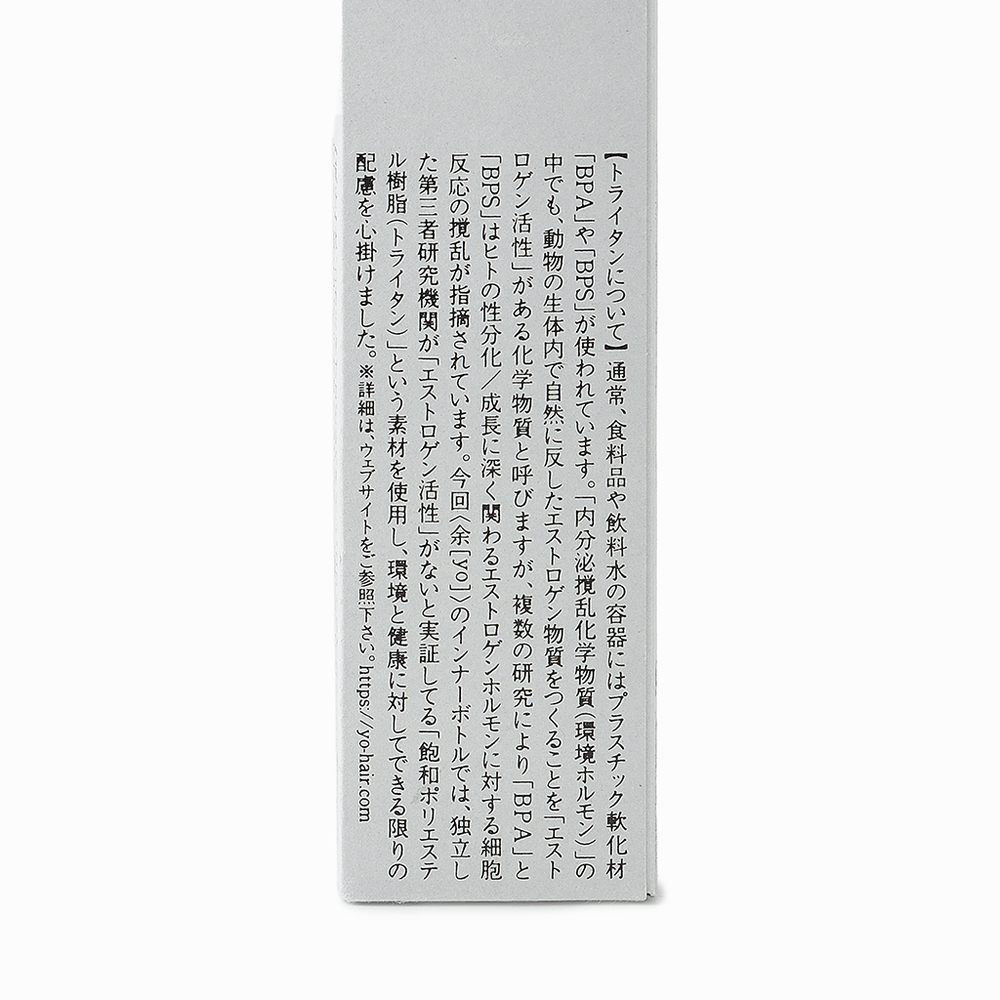 【トライタンについて】通常、食料品や飲料水の容器にはプラスチック軟化材
「BPA」や「BPS」が使われています。「内分泌撹乱化学物質(環境ホルモン)」の
中でも、動物の生体内で自然に反したエストロゲン物質をつくることを「エスト
ロゲン活性」がある化学物質と呼びますが、複数の研究により「BPA」と
「BPS」はヒトの性分化／成長に深く関わるエストロゲンホルモンに対する細胞
反応の撹乱が指摘されています。今回〈余[yo]〉のインナーボトルでは、独立し
た第三者研究機関が「エストロゲン活性」がないと実証してる「飽和ポリエステ
ル樹脂(トライタン)」という素材を使用し、環境と健康に対してできる限りの
配慮を心掛けました。※詳細は、ウェブサイトをご参照下さい。https://yo-hair.com